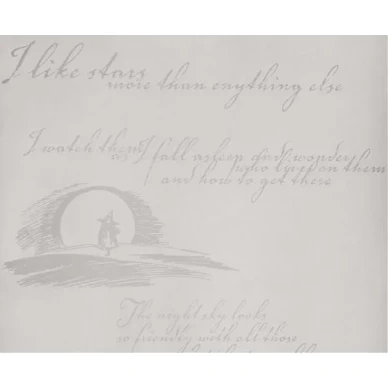 I like stars
more than anything else
I watch them I fall asleep and wonder
as who lives on them
and how to get there
The night sky looks
so friendly with all those